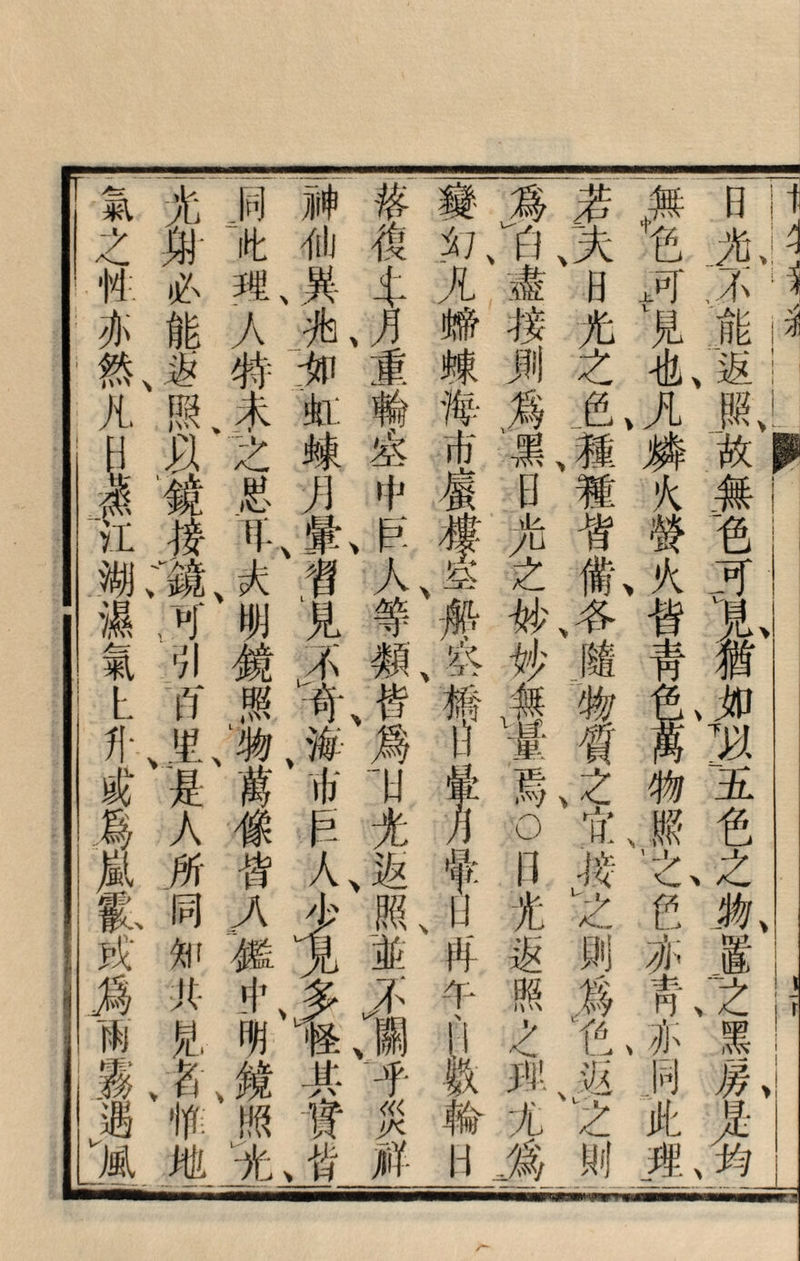 日光、不能返照、故無色可見、猶如以五色之物、置之黑房、是均
無色可見也、凡燐火螢火皆青色、萬物照之、色亦青、亦同此理、
若夫日光之色、種種皆備、各隨物質之宜、接之則爲色、返之則
爲白、盡接則爲黑、日光之妙、妙無量焉、○日光返照之理、尤爲
變幻、凡螮蝀海市蜃樓空船空橋日暈月暈日再午日數輪日
落復上月重輪空中巨人、等類、皆爲日光返照、並不關乎災祥
神仙異兆、如虹蝀月暈、習見不奇、海市巨人、少見多怪、其實皆
同此理、人特未之思耳、夫明鏡照物、萬像皆入鑑中、明鏡照光、
光射必能返照、以鏡接鏡、可引百里、是人所同知共見者、惟地
氣之性亦然、凡日蒸江湖、濕氣上升、或爲嵐靉、或爲雨霧、遇風